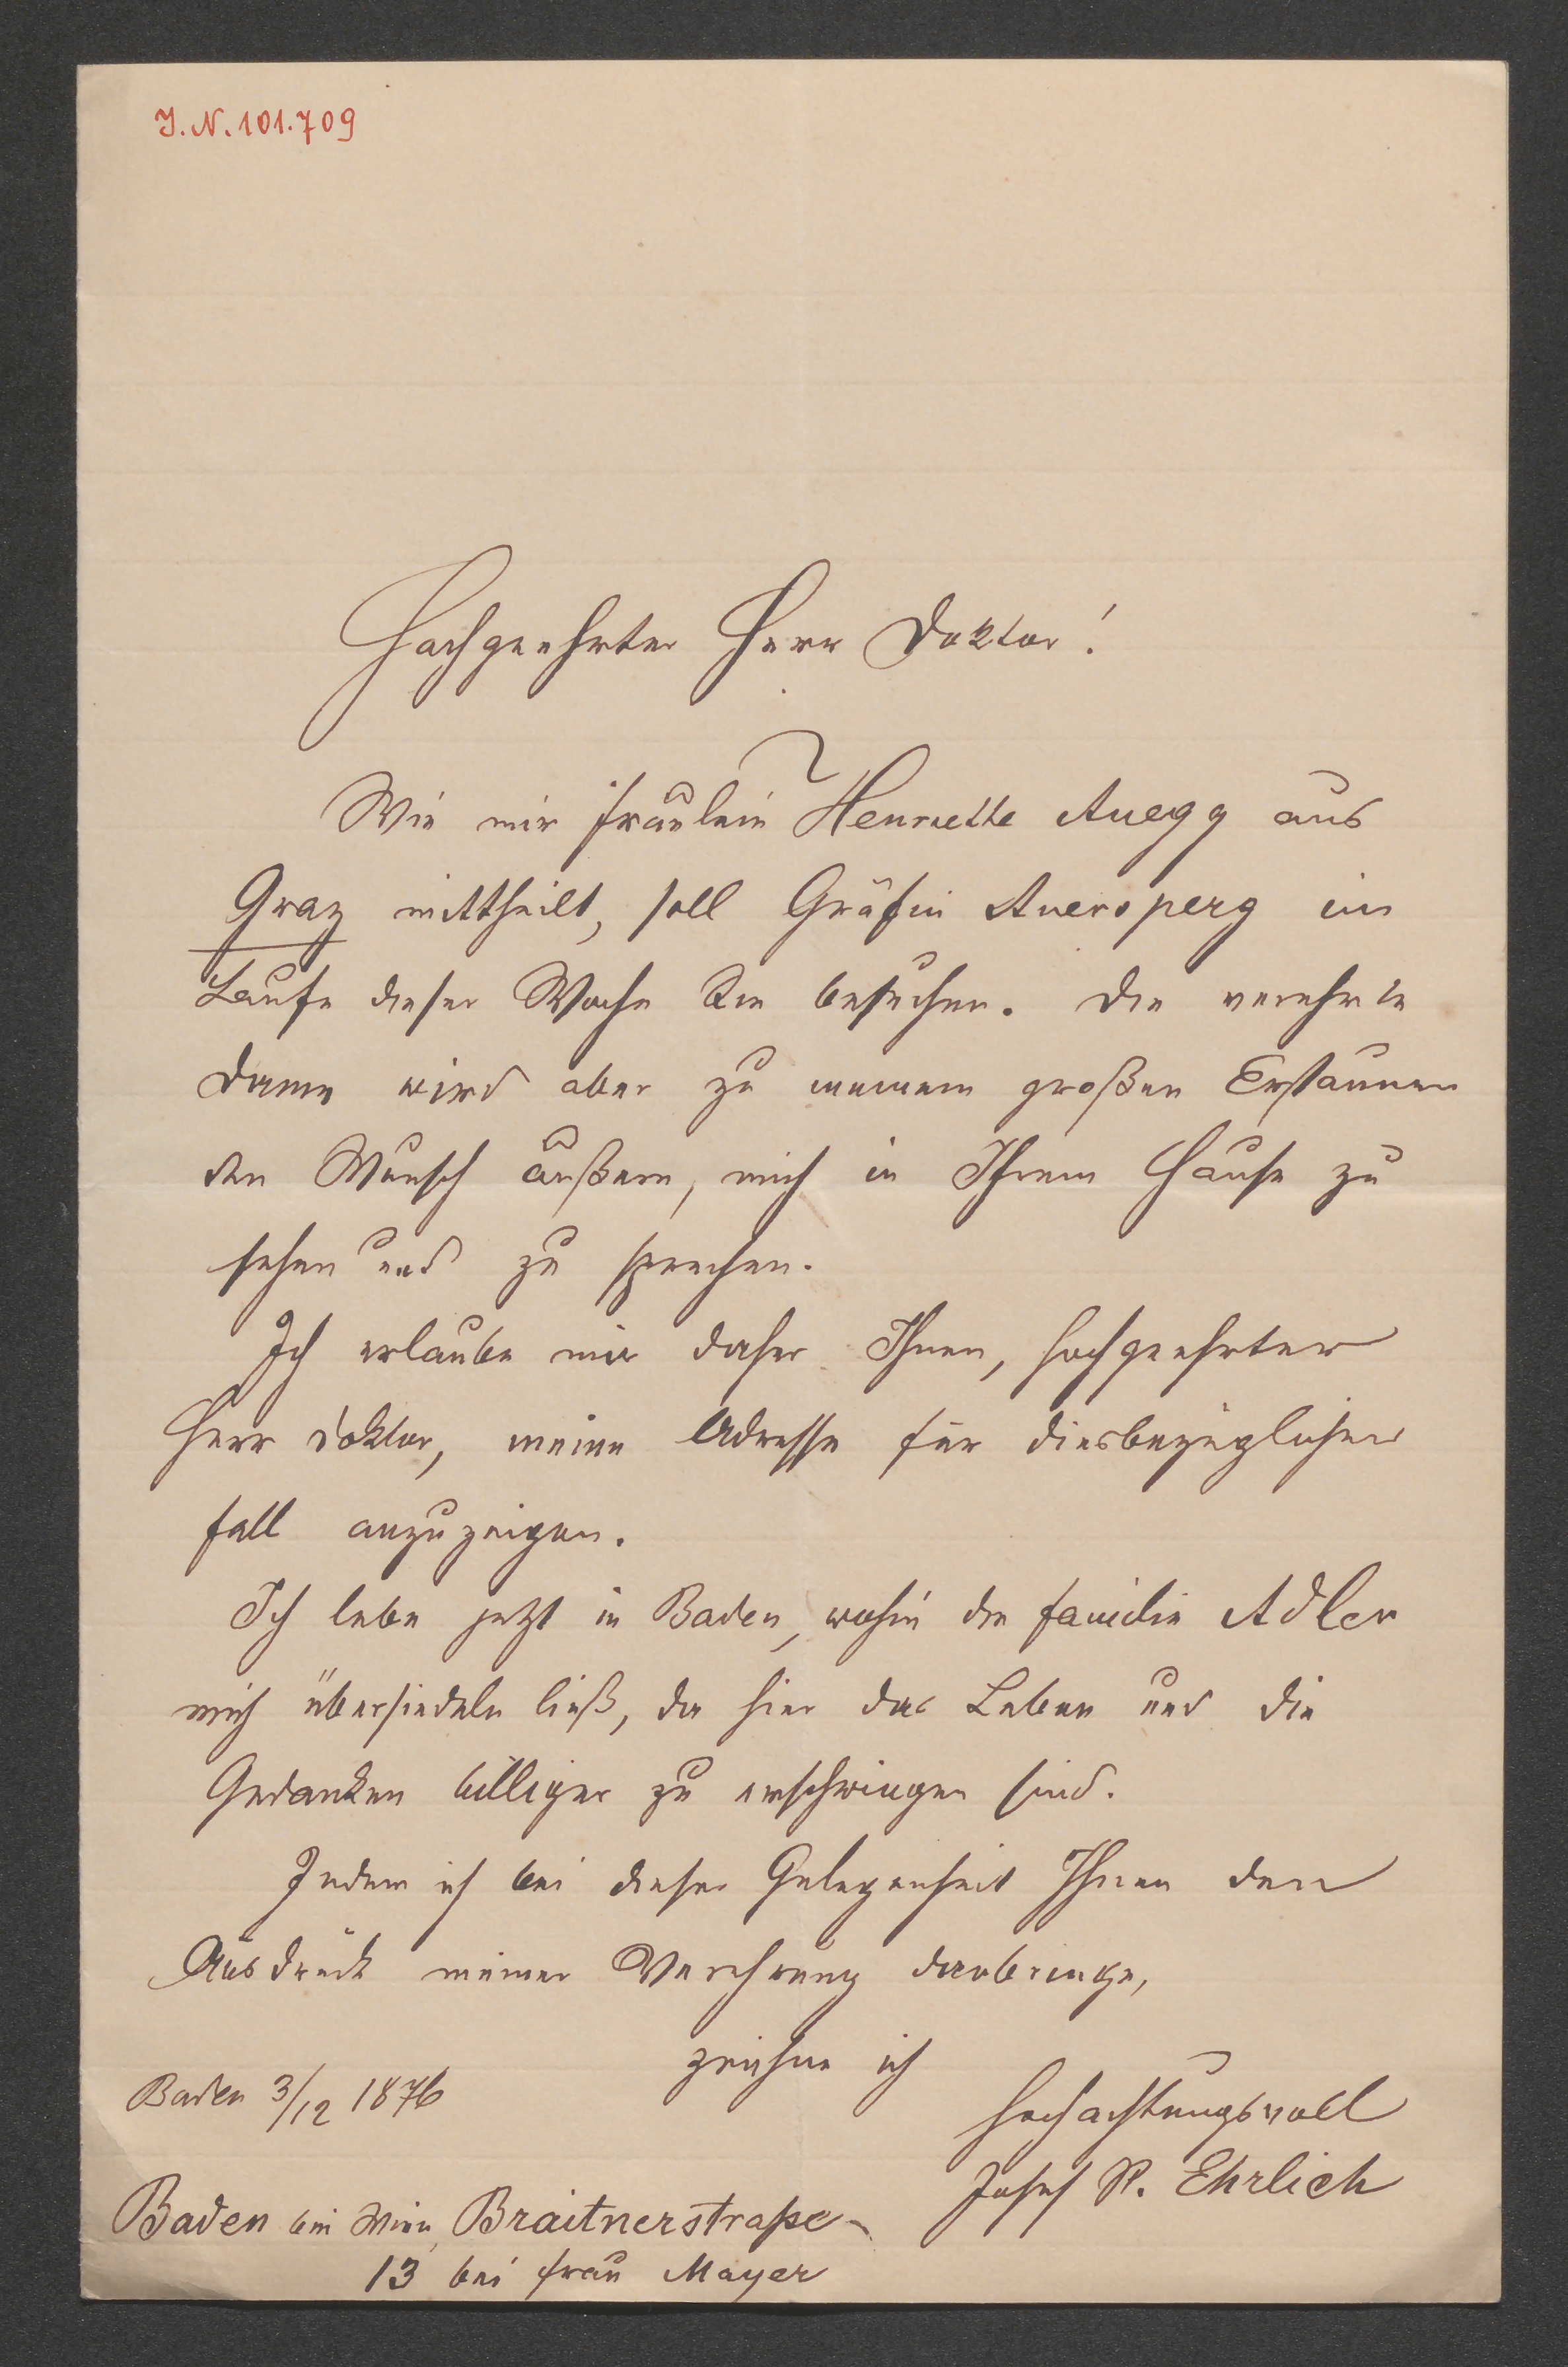 I. N. 101.709
Hochgeehrter Herr Doktor!
Wie mir Fräulein Henriette Auegg aus
Graz mittheilt, soll Gräfin Auersperg im
Laufe dieser Woche Sie besuchen. Die verehrte
Dame wird aber zu meinem großen Erstaunen
den Wunsch äußern, mich in Ihrem Hause zu
sehen und zu sprechen.
Ich erlaube mir daher Ihnen, hochgeehrter
Herr Doktor, meine Adresse für diesbezüglichen
Fall anzuzeigen.
Ich lebe jetzt in Baden, wohin die Familie Adler
mich übersiedeln ließ, da hier das Leben und die
Gedanken billiger zu erschwingen sind.
Indem ich bei dieser Gelegenheit Ihnen den
Ausdruck meiner Verehrung darbringe,
zeichne ich
Baden 3/12 1876
Hochachtungsvoll
Josef R. Ehrlich
Baden bei Wien, Braitnerstraße
13 bei Frau Mayer